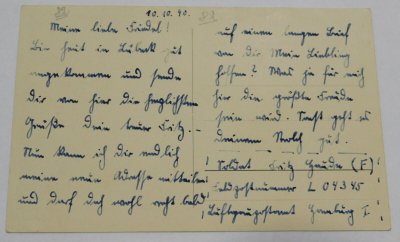 10.10.40.
Meine liebe Friedel!
Bin heut in Lübeck gut
angekommen und sende
Dir von hier die herzlichsten
Grüße Dein treuer Fritz. –
Nun kann ich dir endlich
meine neue Adresse mitteilen
und darf doch wohl recht bald
auf einen langen Brief
von dir Mein Liebling
hoffen? Was ja für mich
hier die größte Freude
sein wird. Sonst geht es
Deinem gut.
Soldat Fritz (F)
Feldpostnummer L 04345
Luftgaupostamt Hamburg I